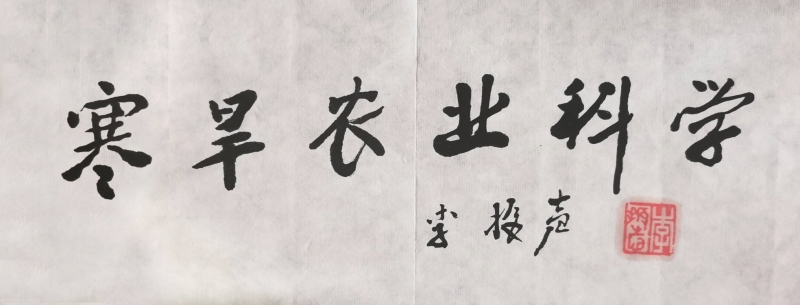 寒旱农业科学
李振声